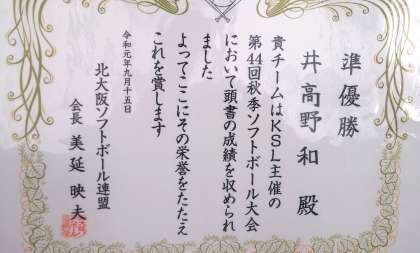 準優勝
井高野和 殿
貴チームはKSL主催の
第44回秋季ソフトボール大会
において頭書の成績を収められ
ました
よってここにその栄誉をたたえ
これを賞します
令和元年九月十五日
北大阪ソフトボール連盟
会長 美延映夫